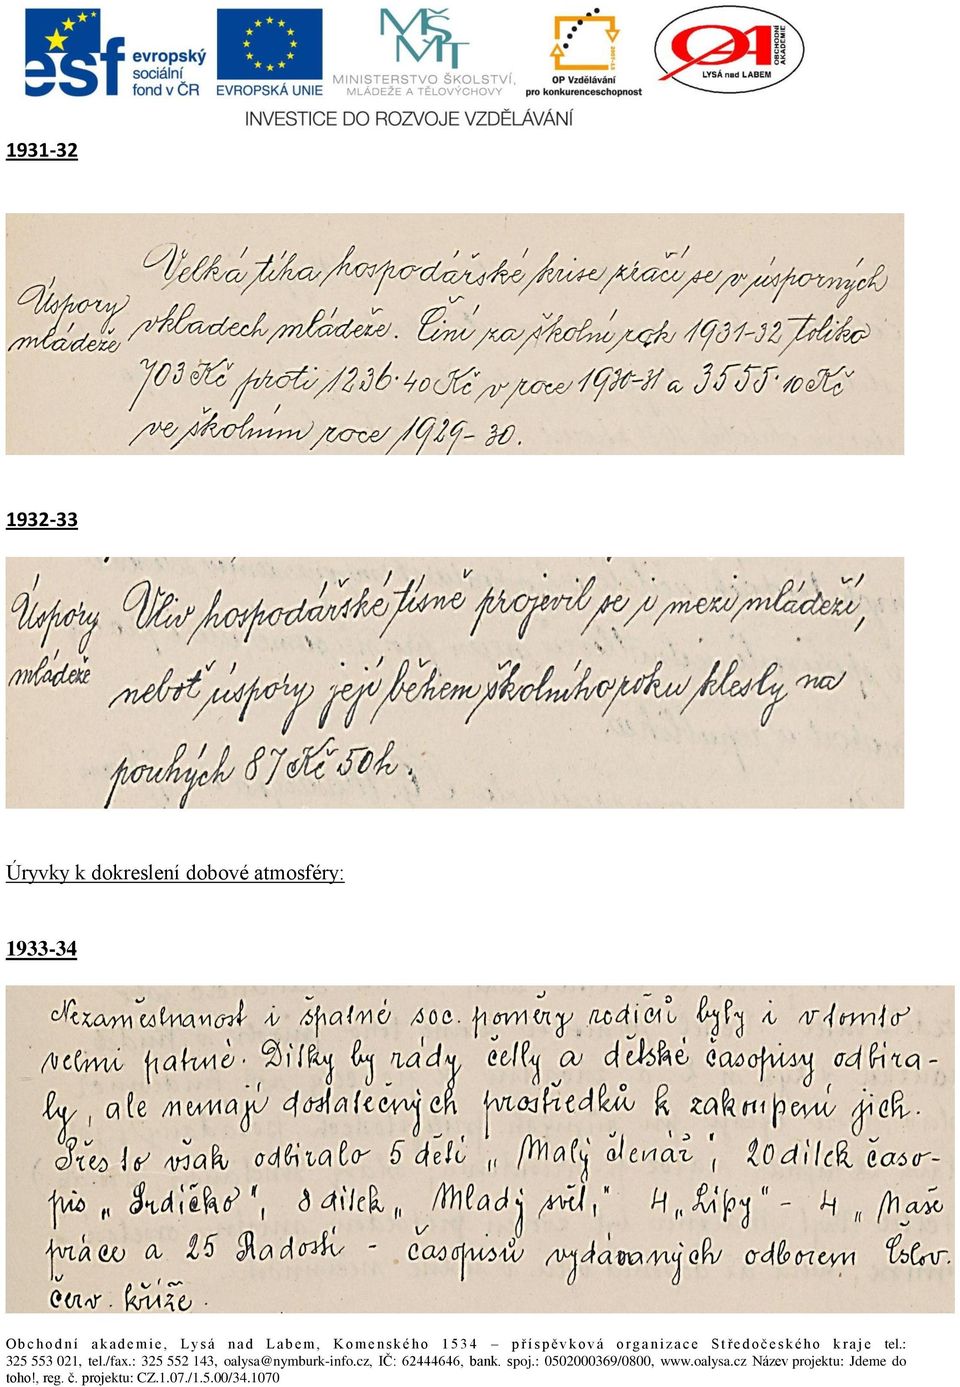 esf evropský sociální fond v ČR
EVROPSKÁ UNIE
MŠMT
MINISTERSTVO ŠKOLSTVÍ,
MLÁDEŽE A TĚLOVÝCHOVY
OP Vzdělávání
pro konkurenceschopnost
OBCHODNÍ AKADEMIE
LYSÁ nad LABEM
INVESTICE DO ROZVOJE VZDĚLÁVÁNÍ
1931-32
Úspory
mládeže
Velká tíha hospodářské krise zračí se v úsporných
vkladech mládeže. Činí za školní rok 1931-32 toliko
703 Kč proti 1236·40 Kč v roce 1930-31 a 3555·10 Kč
ve školním roce 1929-30.
1932-33
Úspory
mládeže
Vliv hospodářské tísně projevil se i mezi mládeží,
neboť úspory její během školního roku klesly na
pouhých 87 Kč 50 h.
Úryvky k dokreslení dobové atmosféry:
1933-34
Nezaměstnanost i špatné soc. poměry rodičů byly i v tomto
velmi patrné. Dítky by rády četly a dětské časopisy odbíra-
ly, ale nemají dostatečných prostředků k zakoupení jich.
Přes to však odbíralo 5 dětí „Malý čtenář", 20 dítek časo-
pis „Srdíčko", 8 dítek „Mladý svět," 4 „Lípy" - 4 „Naše
práce a 25 Radostí - časopisů vydávaných odborem Čslov.
červ. kříže.
Obchodní akademie, Lysá nad Labem, Komenského 1534 – příspěvková organizace Středočeského kraje tel.:
325 553 021, tel./fax.: 325 552 143, oalysa@nymburk-info.cz, IČ: 62444646, bank. spoj.: 0502000369/0800, www.oalysa.cz Název projektu: Jdeme do
toho!, reg. č. projektu: CZ.1.07./1.5.00/34.1070